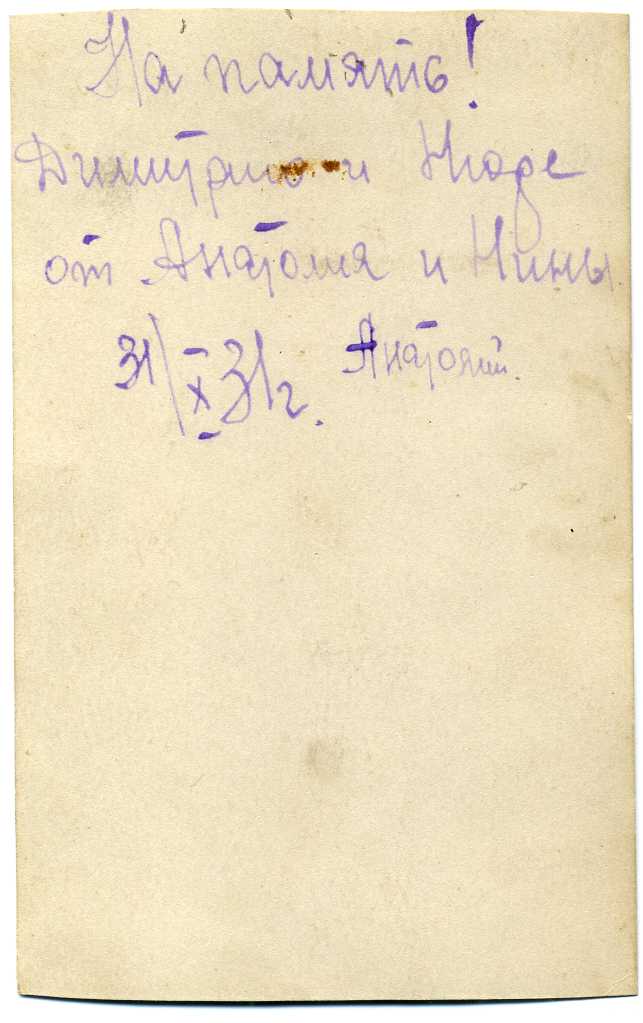 На память!
Димитрию и Нюре
от Анатолия и Нины
31/X 31 г. Анатолий.